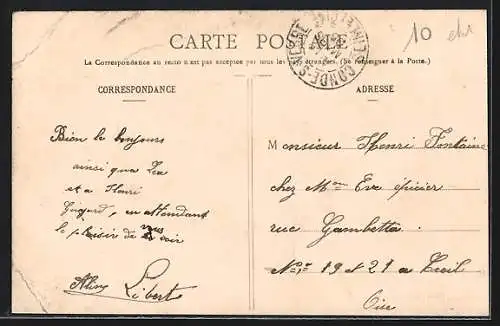 CARTE POSTALE
10
La Correspondance au recto n'est pas acceptée par tous les pays étrangers. (Se renseigner à la Poste.)
CORRESPONDANCE
Bien le bonjour
ainsi qu'a Lea
et a Henri
en attendant
le plaisir de vous voir
Libert
ADRESSE
Monsieur Henri Fontaine
chez Mon Eve épicier
rue Gambetta
Nos 19 et 21 a Creil
Oise